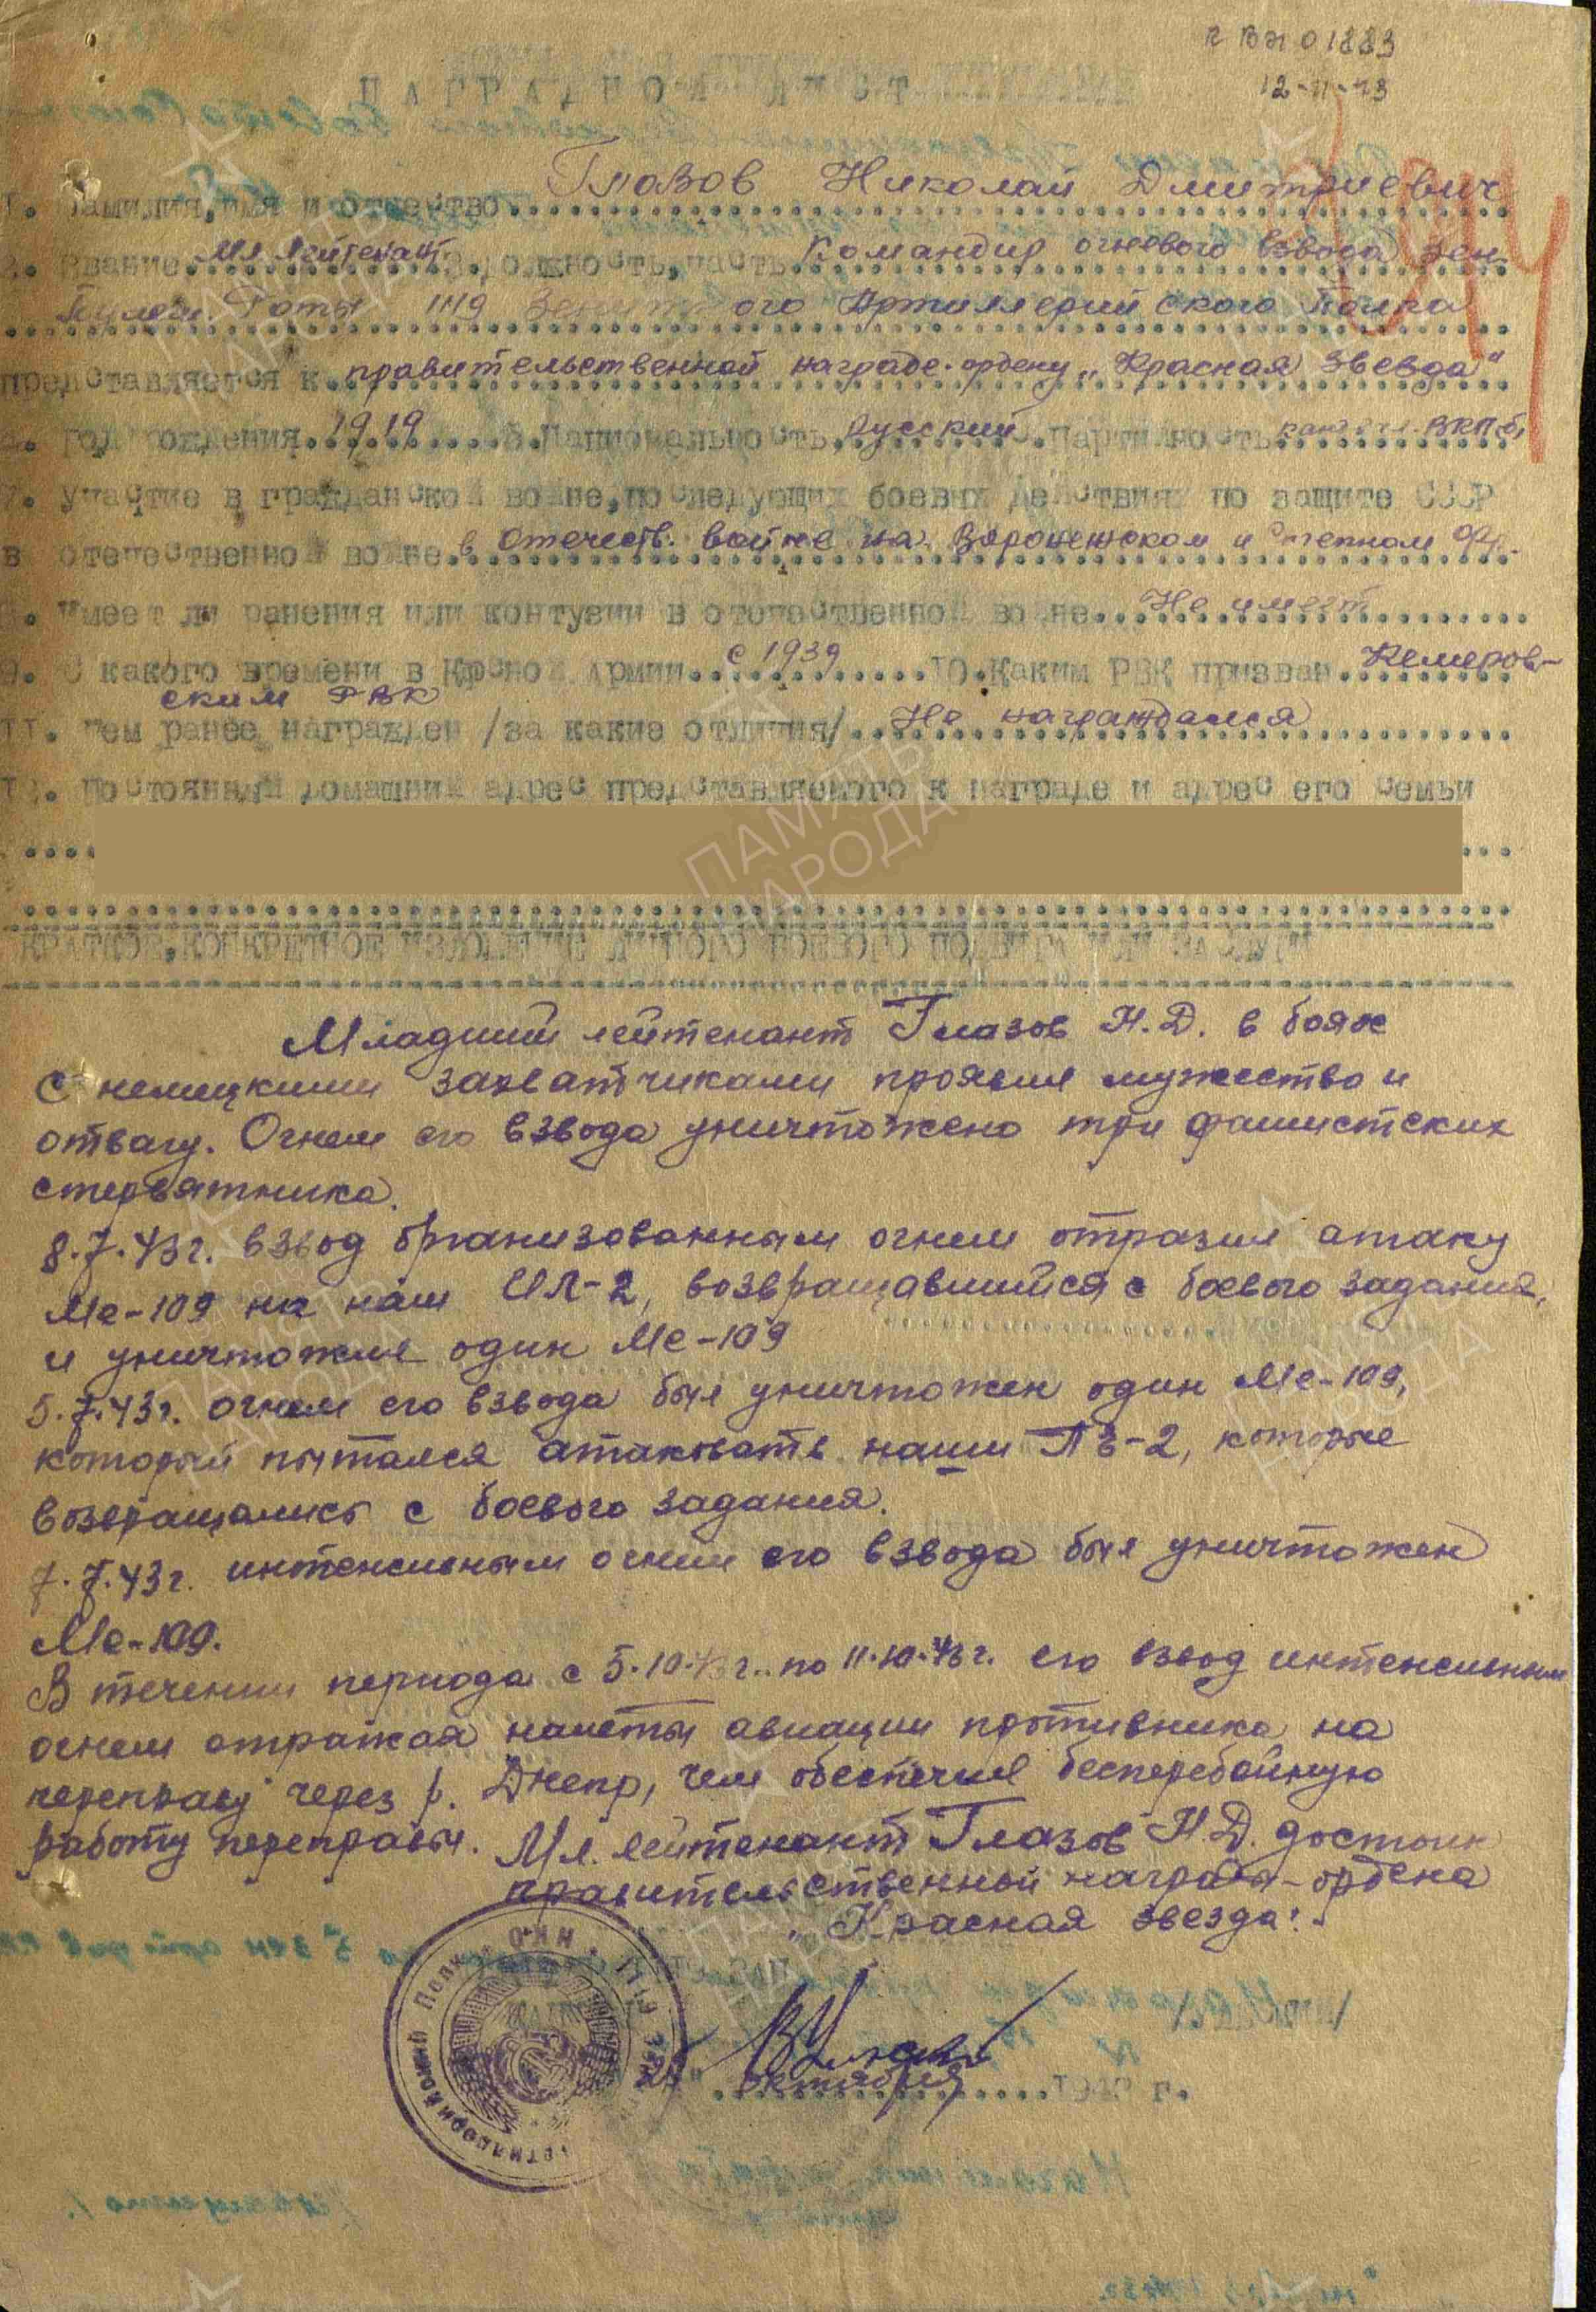 12-11-43
НАГРАДНОЙ ЛИСТ
1. Фамилия, имя и отчество Глазов Николай Дмитриевич
2. Звание Мл. Лейтенант 3. Должность, часть Командир огневого взвода Зен.
Пулем. Роты 1119 Зенитного Артиллерийского Полка
представляется к правительственной награде-ордену „Красная Звезда"
4. Год рождения 1919 5. Национальность Русский 6. Партийность канд. чл. ВКП(б)
7. Участие в гражданской войне, последующих боевых действиях по защите СССР
в отечественной войне в Отечеств. войне на Воронежском и Степном фр.
8. Имеет ли ранения или контузии в отечественной войне Не имеет
9. С какого времени в Красной Армии с 1939 10. Каким РВК призван Кемеров-
ским РВК
11. Чем ранее награжден /за какие отличия/ Не награждался
12. Постоянный домашний адрес представляемого к награде и адрес его семьи
КРАТКОЕ, КОНКРЕТНОЕ ИЗЛОЖЕНИЕ ЛИЧНОГО БОЕВОГО ПОДВИГА ИЛИ ЗАСЛУГ
Младший лейтенант Глазов Н.Д. в боях
с немецкими захватчиками проявил мужество и
отвагу. Огнем его взвода уничтожено три фашистских
стервятника.
8.7.43г. взвод организованным огнем отразил атаку
Ме-109 на наш ИЛ-2, возвращавшийся с боевого задания,
и уничтожил один Ме-109
5.7.43г. огнем его взвода был уничтожен один Ме-109,
который пытался атаковать наши ПЕ-2, которые
возвращались с боевого задания.
7.7.43г. интенсивным огнем его взвода был уничтожен
Ме-109.
В течении периода с 5.10.43г. по 11.10.43г. его взвод интенсивным
огнем отражал налеты авиации противника на
переправу через р. Днепр, чем обеспечил бесперебойную
работу переправы. Мл. лейтенант Глазов Н.Д. достоин
правительственной награды-ордена
„Красная звезда".
октября 194 г.
ПАМЯТЬ НАРОДА